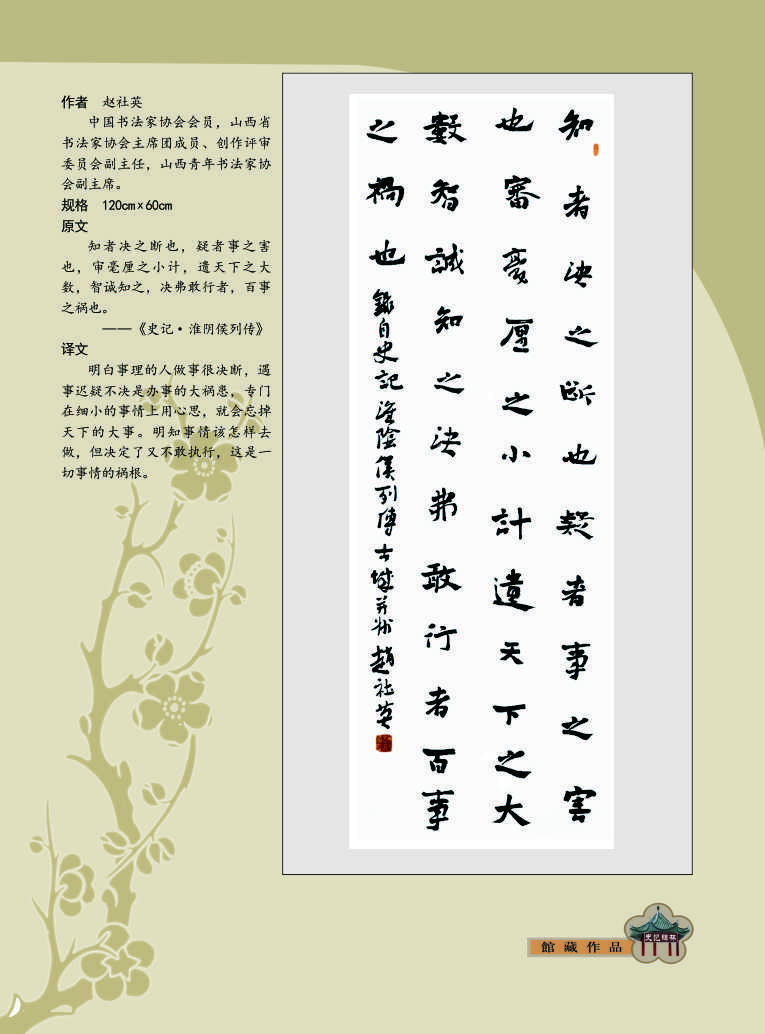 作者　赵社英
中国书法家协会会员，山西省
书法家协会主席团成员、创作评审
委员会副主任，山西青年书法家协
会副主席。
规格　120cm×60cm
原文
知者决之断也，疑者事之害
也，审毫厘之小计，遗天下之大
数，智诚知之，决弗敢行者，百事
之祸也。
——《史记·淮阴侯列传》
译文
明白事理的人做事很决断，遇
事迟疑不决是办事的大祸患，专门
在细小的事情上用心思，就会忘掉
天下的大事。明知事情该怎样去
做，但决定了又不敢执行，这是一
切事情的祸根。
知者决之断也疑者事之害
也審毫厘之小計遺天下之大
數智誠知之决弗敢行者百事
之禍也 錄自史記淮陰侯列傳 古城并州趙社英
館藏作品
史记碑林